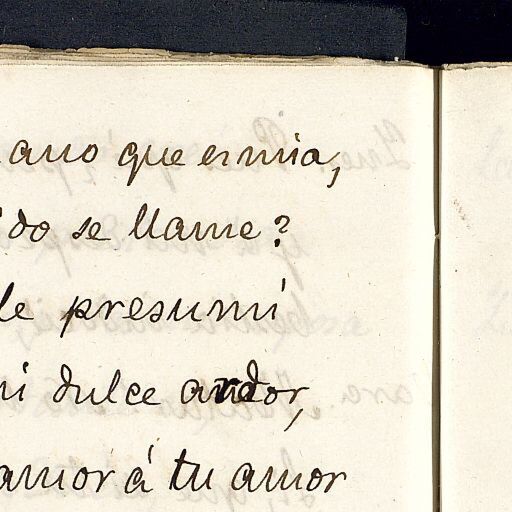 ano que es mia,
ido se llame?
le presumí
mi dulce ardor,
amor á tu amor